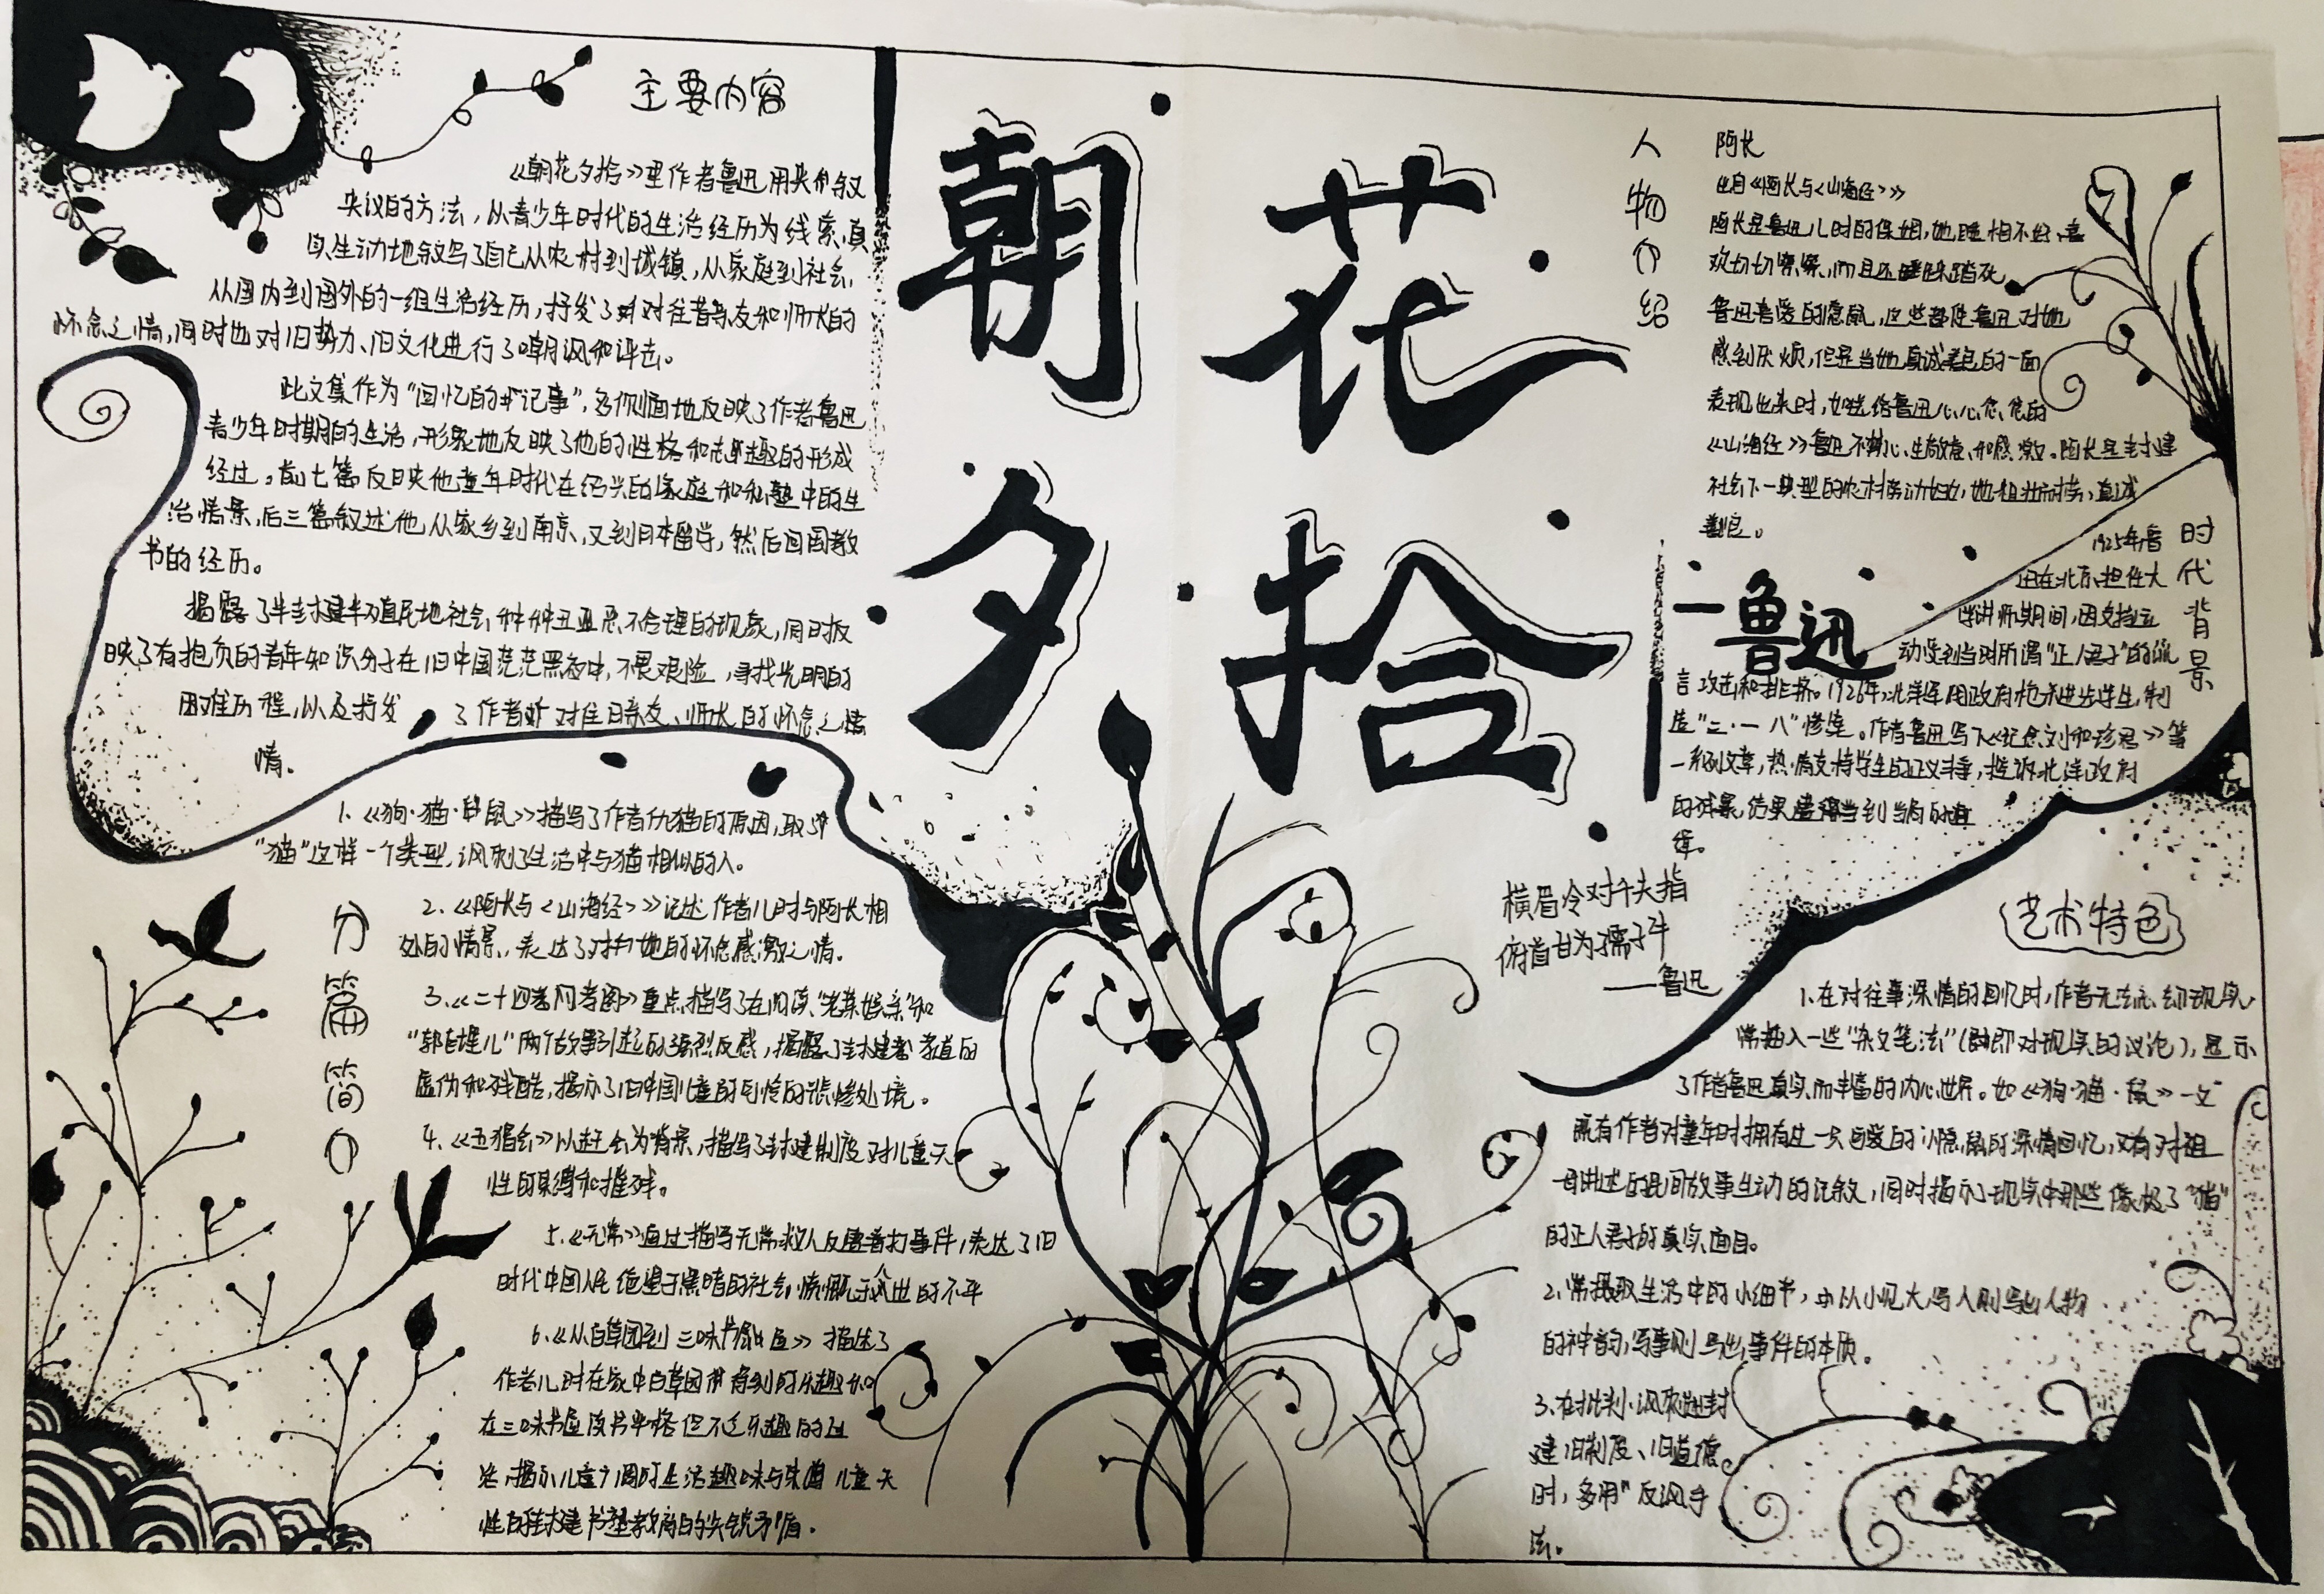 主要内容
《朝花夕拾》里作者鲁迅用夹叙
夹议的方法，从青少年时代的生活经历为线索，真
生动地叙写了自己从农村到城镇，从家庭到社会，
从国内到国外的一组生活经历，抒发了对往昔亲友和师长的
怀念之情，同时也对旧势力、旧文化进行了嘲讽和抨击。
此文集作为“回忆的记事”，多侧面地反映了作者鲁迅
青少年时期的生活，形象地反映了他的性格和志趣的形成
经过。前七篇反映他童年时代在绍兴的家庭和私塾中的生
活情景，后三篇叙述他从家乡到南京，又到日本留学，然后回国教
书的经历。
揭露了半封建半殖民地社会种种丑恶不合理的现象，同时反
映了有抱负的青年知识分子在旧中国茫茫黑夜中，不畏艰险，寻找光明的
困难历程，以及抒发了作者对往日亲友、师长的怀念之情
情。
朝花
夕拾
一鲁迅
分篇简介
1.《狗·猫·鼠》描写了作者仇猫的原因，取
“猫”这样一个类型，讽刺了生活中与猫相似的人。
2.《阿长与〈山海经〉》记述作者儿时与阿长相
处的情景，表达了对她的怀念感激之情。
3.《二十四孝图》重点描写了在阅读“老莱娱亲”和
“郭巨埋儿”两个故事引起的强烈反感，揭露了封建孝道的
虚伪和残酷，揭示了旧中国儿童的可怜的悲惨处境。
4.《五猖会》以赶会为背景，描写了封建制度对儿童天
性的束缚和摧残。
5.《无常》通过描写无常救人反遭毒打事件，表达了旧
时代中国人民绝望于黑暗的社会，愤慨于人世的不平
6.《从百草园到三味书屋》描述了
作者儿时在家中百草园得到的乐趣和
在三味书屋读书严格但不乏乐趣的生
活，揭示儿童广阔的生活趣味与束缚儿童天
性的封建书塾教育的尖锐矛盾。
人物介绍
阿长
出自《阿长与〈山海经〉》
阿长是鲁迅儿时的保姆，她睡相不好、喜
欢切切察察，而且还踩死
鲁迅喜爱的隐鼠，这些都使鲁迅对她
感到厌烦，但是当她真诚善良的一面
表现出来时，如送给鲁迅心心念念的
《山海经》鲁迅不禁心生敬意和感激。阿长是封建
社会下一典型的农村劳动妇女，她粗壮而勤劳，真诚
善良。
时代背景
1925年鲁
迅在北京担任大
学讲师期间，因支持
动受到当时所谓“正人君子”的流
言攻击和排挤。1926年，北洋军阀政府枪杀进步学生，制
造“三·一八”惨案。作者鲁迅写下《记念刘和珍君》等
一系列文章，热情支持学生的正义斗争，控诉北洋政府
的残暴，结果遭到当局的通
缉。
横眉冷对千夫指
俯首甘为孺子牛
——鲁迅
艺术特色
1.在对往事深情的回忆时，作者无法忘却现实，
常插入一些“杂文笔法”（即对现实的议论），显示
了作者鲁迅真实而丰富的内心世界。如《狗·猫·鼠》一文
既有作者对童年时拥有过一只可爱的小隐鼠的深情回忆，又有对祖
母讲述的民间故事生动的记叙，同时揭示了现实中那些像极了“猫”
的正人君子的真实面目。
2.常摄取生活中的小细节，从小见大，写人则写出人物
的神韵，写事则写出事件的本质。
3.在批判、讽刺封
建旧制度、旧道德
时，多用“反讽手
法。